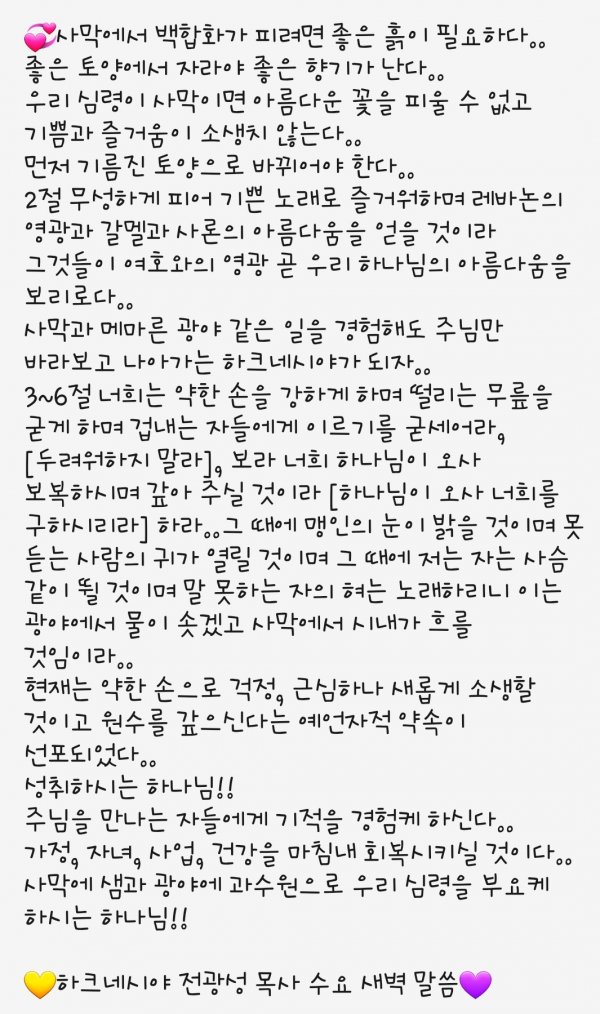 💞사막에서 백합화가 피려면 좋은 흙이 필요하다..
좋은 토양에서 자라야 좋은 향기가 난다..
우리 심령이 사막이면 아름다운 꽃을 피울 수 없고
기쁨과 즐거움이 소생치 않는다..
먼저 기름진 토양으로 바뀌어야 한다..
2절 무성하게 피어 기쁜 노래로 즐거워하며 레바논의
영광과 갈멜과 사론의 아름다움을 얻을 것이라
그것들이 여호와의 영광 곧 우리 하나님의 아름다움을
보리로다..
사막과 메마른 광야 같은 일을 경험해도 주님만
바라보고 나아가는 하크네시야가 되자..
3~6절 너희는 약한 손을 강하게 하며 떨리는 무릎을
굳게 하며 겁내는 자들에게 이르기를 굳세어라,
[두려워하지 말라], 보라 너희 하나님이 오사
보복하시며 갚아 주실 것이라 [하나님이 오사 너희를
구하시리라] 하라..그 때에 맹인의 눈이 밝을 것이며 못
듣는 사람의 귀가 열릴 것이며 그 때에 저는 자는 사슴
같이 뛸 것이며 말 못하는 자의 혀는 노래하리니 이는
광야에서 물이 솟겠고 사막에서 시내가 흐를
것임이라..
현재는 약한 손으로 걱정, 근심하나 새롭게 소생할
것이고 원수를 갚으신다는 예언자적 약속이
선포되었다..
성취하시는 하나님!!
주님을 만나는 자들에게 기적을 경험케 하신다..
가정, 자녀, 사업, 건강을 마침내 회복시키실 것이다..
사막에 샘과 광야에 과수원으로 우리 심령을 부요케
하시는 하나님!!
💛하크네시야 전광성 목사 수요 새벽 말씀💜